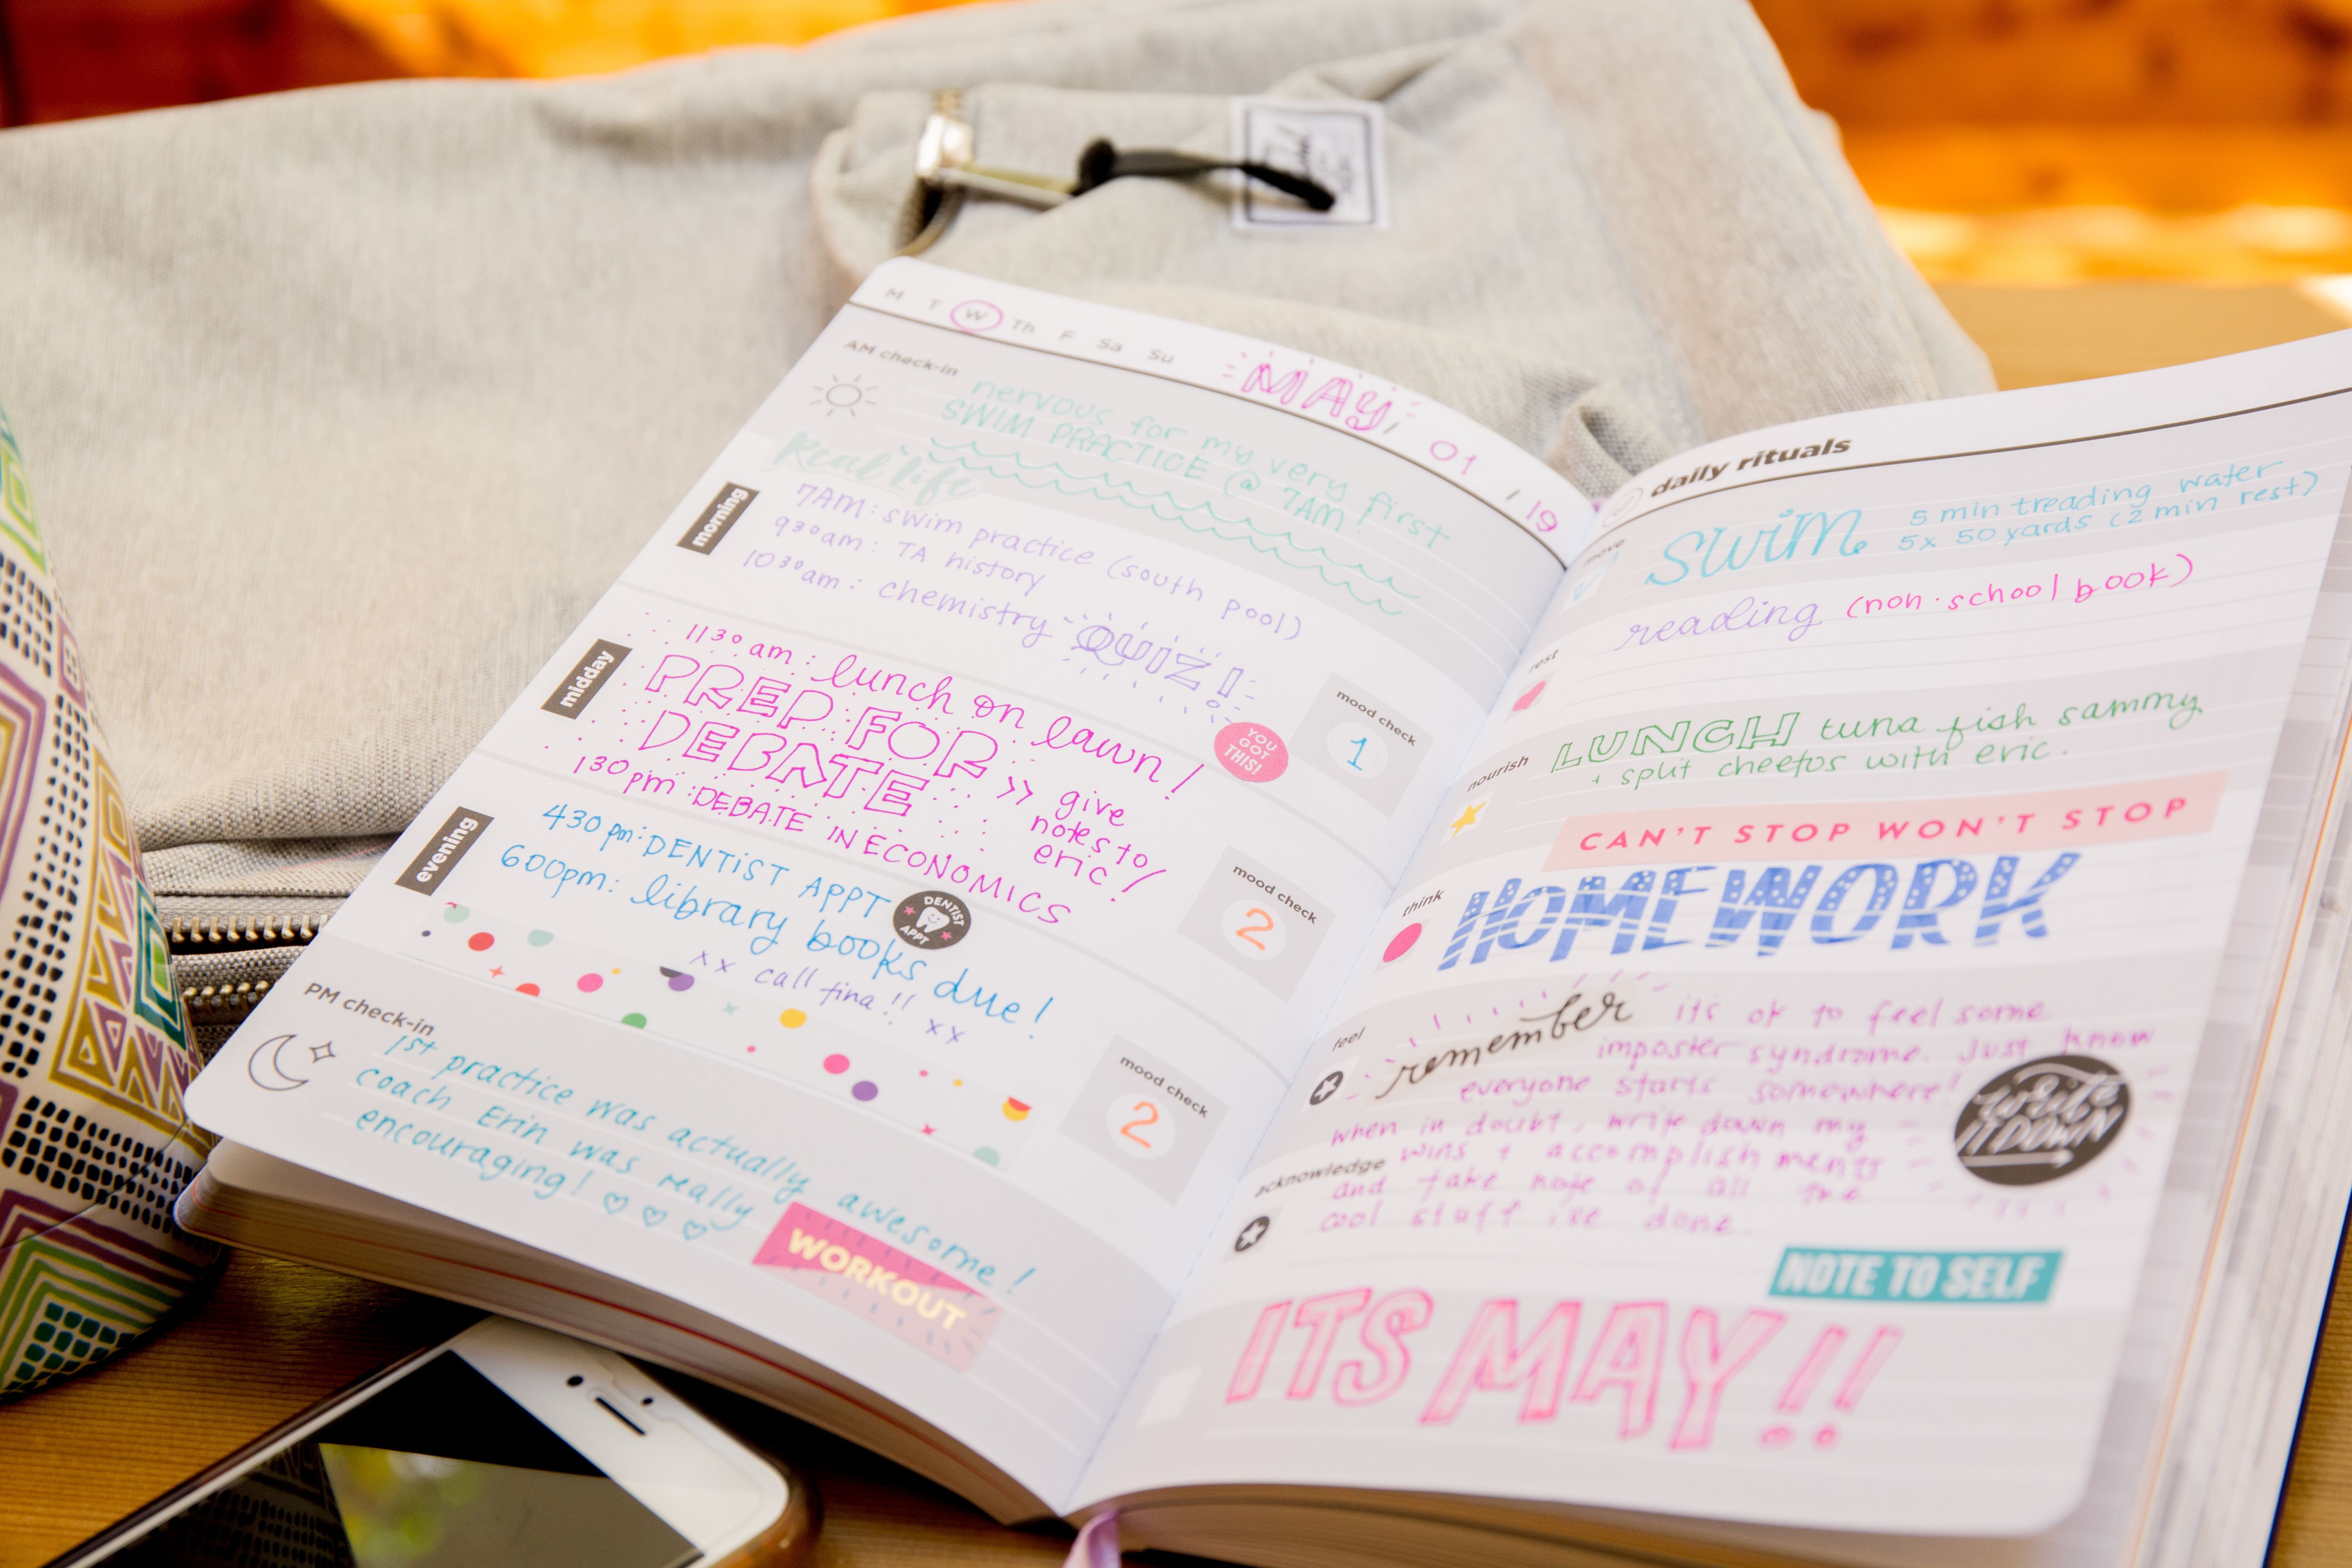 M T W Th F Sa Su
MAY, 01 / 19
AM check-in
nervous for my very first
SWIM PRACTICE @ 7AM!
Real life
morning
7AM: swim practice (south pool)
9 30 am: TA history
10 30 am: chemistry QUIZ!
midday
11 30 am: lunch on lawn!
PREP FOR
DEBATE >> give
notes to
eric!
1 30 pm: DEBATE IN ECONOMICS
YOU
GOT
THIS!
mood check
1
evening
4 30 pm: DENTIST APPT
DENTIST
APPT
600pm: library books due!
xx call tina!! xx
mood check
2
PM check-in
1st practice was actually awesome!
coach Erin was really
encouraging! ♡ ♡ ♡
WORKOUT
mood check
2
daily rituals
move
swim 5 min treading water
5x 50 yards (2 min rest)
reading (non-school book)
rest
nourish
LUNCH tuna fish sammy
+ split cheetos with eric.
CAN'T STOP WON'T STOP
think
HOMEWORK
feel
remember its ok to feel some
imposter syndrome. Just know
everyone starts somewhere!
when in doubt, write down my
wins + accomplishments
and take note of all the
cool stuff ive done.
write
IT DOWN
acknowledge
NOTE TO SELF
ITS MAY!!